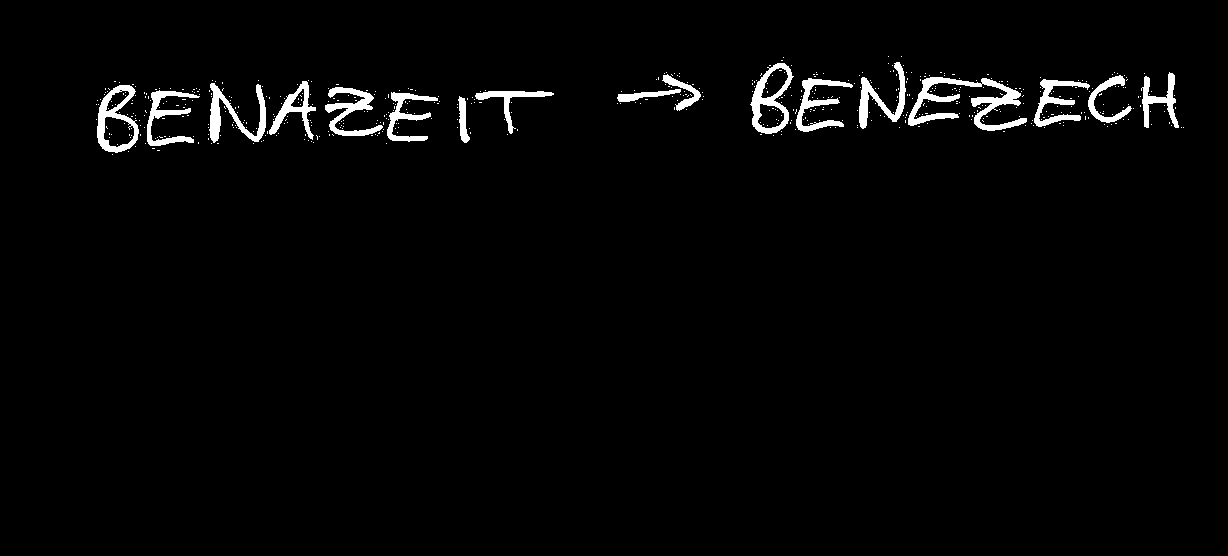 BENAZEIT → BENEZECH